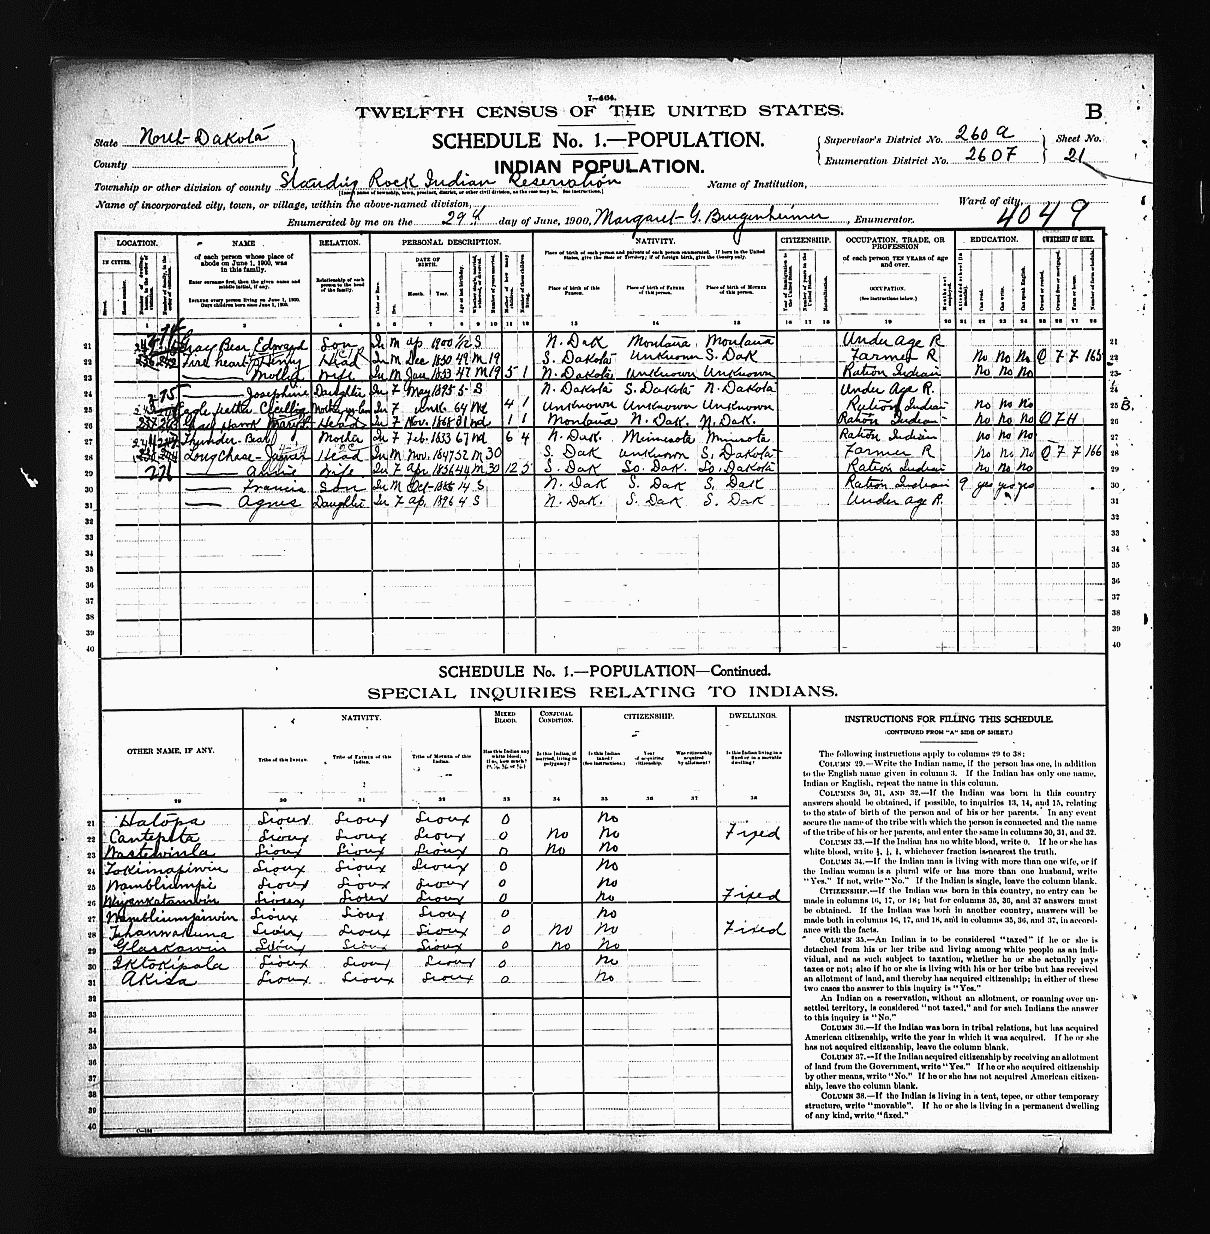 7-464.
TWELFTH CENSUS OF THE UNITED STATES.
B
State North Dakota
SCHEDULE No. 1.—POPULATION.
Supervisor's District No. 260 a
Sheet No.
County
INDIAN POPULATION.
Enumeration District No. 2607
21
Township or other division of county Standing Rock Indian Reservation
Name of Institution,
Name of incorporated city, town, or village, within the above-named division,
Ward of city,
4049
Enumerated by me on the 29th day of June, 1900, Margaret G. Burgenheimer, Enumerator.
LOCATION. NAME RELATION. PERSONAL DESCRIPTION. NATIVITY. CITIZENSHIP. OCCUPATION, TRADE, OR PROFESSION EDUCATION. OWNERSHIP OF HOME.
IN CITIES. of each person whose place of abode on June 1, 1900, was in this family. Relationship of each person to the head of the family. DATE OF BIRTH. Place of birth of this Person. Place of birth of Father of this person. Place of birth of Mother of this person. of each person TEN YEARS of age and over.
Month. Year. OCCUPATION.
21 Gray Bear Edward Son In M Ap 1900 1/12 S N. Dak Montana Montana Under Age R 21
22 Fire heart Henry Head In M Dec 1850 49 M 19 S. Dakota Unknown S. Dak Farmer R No No No O F F 165 22
23 — Mollie Wife In M Jan 1853 47 M 19 5 1 N. Dakota Unknown Unknown Ration Indian No No No 23
24 — Josephine Daughter In F May 1895 5 S N. Dakota S. Dakota N. Dakota Under Age R. 24
25 Eagle feather Cecilia Mother in law In F Unk 64 Wd 4 1 Unknown Unknown Unknown Ration Indian No No No 25 B.
26 Gray Hawk Mary Head In F Nov. 1868 31 Wd 1 1 Montana N. Dak. N. Dak. Ration Indian No No No O F H 26
27 Thunder Bear Mother In F Feb. 1833 67 Wd 6 4 N. Dak. Minnesota Minnesota Ration Indian No No No 27
28 Long Chase James Head In M Nov. 1847 52 M 30 S. Dak Unknown S. Dakota Farmer R No No No O F F 166 28
29 — Annie Wife In F Apr. 1856 44 M 30 12 5 S. Dak So. Dak. So. Dakota Ration Indian No No No 29
30 — Francis Son In M Oct 1885 14 S N. Dak S. Dak S. Dak Ration Indian 9 yes yes yes 30
31 — Agnes Daughter In F Ap. 1896 4 S N. Dak. S. Dak S. Dak Under Age R. 31
32 32
33 33
34 34
35 35
36 36
37 37
38 38
39 39
40 40
SCHEDULE No. 1.—POPULATION—Continued.
SPECIAL INQUIRIES RELATING TO INDIANS.
NATIVITY. MIXED BLOOD. CONJUGAL CONDITION. CITIZENSHIP. DWELLINGS.
OTHER NAME, IF ANY. Tribe of this Indian. Tribe of Father of this Indian. Tribe of Mother of this Indian. Is this Indian taxed? Year of acquiring citizenship. Was citizenship acquired by allotment? Is this Indian living in a fixed or in a movable dwelling?
29 30 31 32 33 34 35 36 37 38
21 Halopa Sioux Sioux Sioux 0 No
22 Cantepeta Sioux Sioux Sioux 0 No No Fixed
23 Wastewinla Sioux Sioux Sioux 0 No No
24 Tokimapiwin Sioux Sioux Sioux 0 No
25 Wambliumpi Sioux Sioux Sioux 0 No
26 Wiyankatanwin Sioux Sioux Sioux 0 No Fixed
27 Wambliumpiwin Sioux Sioux Sioux 0 No
28 Tehanwakuna Sioux Sioux Sioux 0 No No Fixed
29 Glaskawin Sioux Sioux Sioux 0 No No
30 Iktokipala Sioux Sioux Sioux 0 No
31 Akisa Sioux Sioux Sioux 0 No
32
33
34
35
36
37
38
39
40
INSTRUCTIONS FOR FILLING THIS SCHEDULE.
(CONTINUED FROM "A" SIDE OF SHEET.)
The following instructions apply to columns 29 to 38:
COLUMN 29.—Write the Indian name, if the person has one, in addition
to the English name given in column 3. If the Indian has only one name,
Indian or English, repeat the name in this column.
COLUMNS 30, 31, AND 32.—If the Indian was born in this country
answers should be obtained, if possible, to inquiries 13, 14, and 15, relating
to the state of birth of the person and of his or her parents. In any event
secure the name of the tribe with which the person is connected and the name
of the tribe of his or her parents, and enter the same in columns 30, 31, and 32.
COLUMN 33.—If the Indian has no white blood, write 0. If he or she has
white blood, write ½, ¼, ⅛, whichever fraction is nearest the truth.
COLUMN 34.—If the Indian man is living with more than one wife, or if
the Indian woman is a plural wife or has more than one husband, write
"Yes." If not, write "No." If the Indian is single, leave the column blank.
CITIZENSHIP.—If the Indian was born in this country, no entry can be
made in columns 16, 17, or 18; but for columns 35, 36, and 37 answers must
be obtained. If the Indian was born in another country, answers will be
made both in columns 16, 17, and 18, and in columns 35, 36, and 37, in accord-
ance with the facts.
COLUMN 35.—An Indian is to be considered "taxed" if he or she is
detached from his or her tribe and living among white people as an indi-
vidual, and as such subject to taxation, whether he or she actually pays
taxes or not; also if he or she is living with his or her tribe but has received
an allotment of land, and thereby has acquired citizenship; in either of these
two cases the answer to this inquiry is "Yes."
An Indian on a reservation, without an allotment, or roaming over un-
settled territory, is considered "not taxed," and for such Indians the answer
to this inquiry is "No."
COLUMN 36.—If the Indian was born in tribal relations, but has acquired
American citizenship, write the year in which it was acquired. If he or she
has not acquired citizenship, leave the column blank.
COLUMN 37.—If the Indian acquired citizenship by receiving an allotment
of land from the Government, write "Yes." If he or she acquired citizenship
by other means, write "No." If he or she has not acquired American citizen-
ship, leave the column blank.
COLUMN 38.—If the Indian is living in a tent, tepee, or other temporary
structure, write "movable". If he or she is living in a permanent dwelling
of any kind, write "fixed."